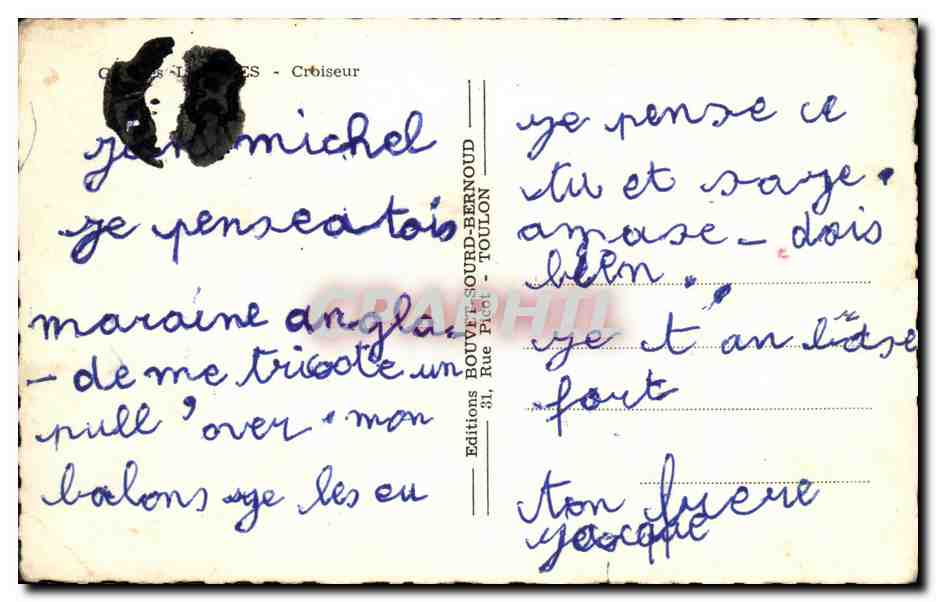 - Croiseur
michel
je penseatois
maraine angla-
- de me tricote un
pull'over. mon
balons je les eu
Editions BOUVET-SOURD-BERNOUD
31, Rue Picot - TOULON
CARTHPHIL
je pense ce
tu et saje.
amase - dois
bien.
je t'an brase
fort
ton frere
jacque